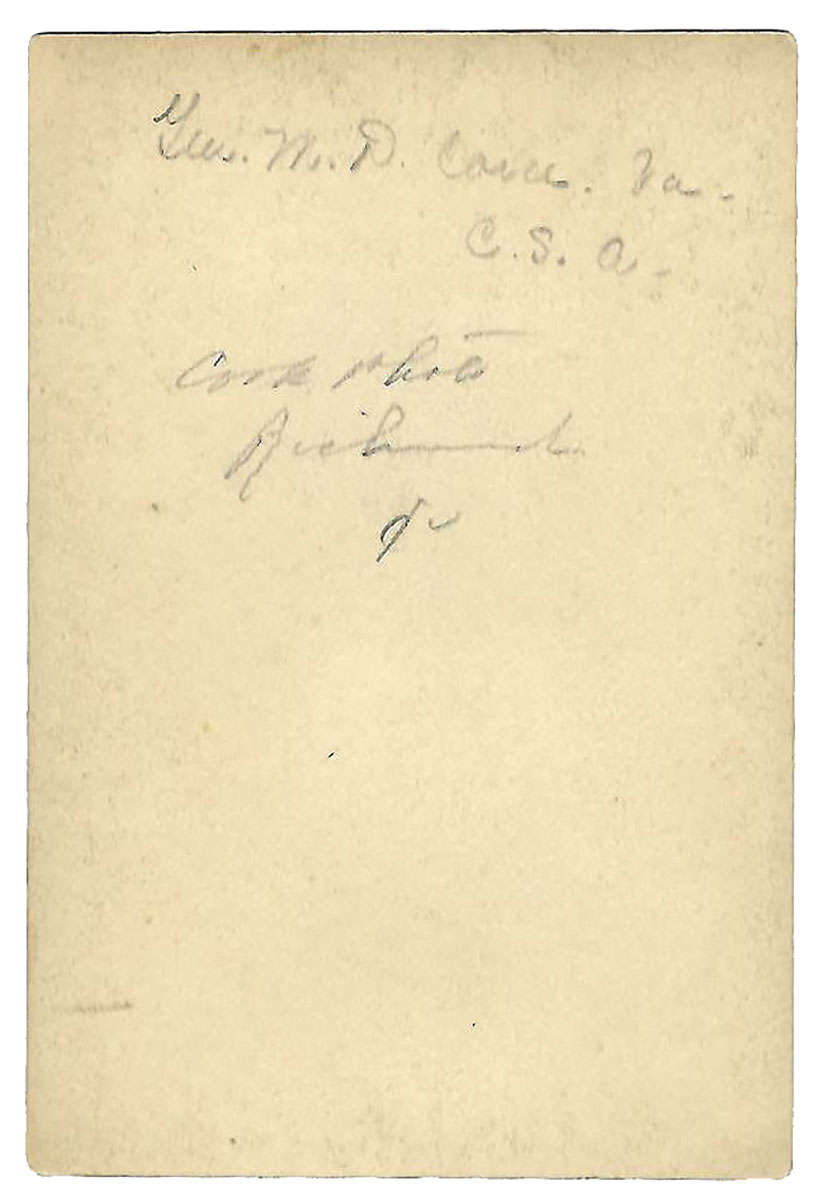 Gen. M. D. Corse. Va.
C. S. A.
Cook Photo
Richmond